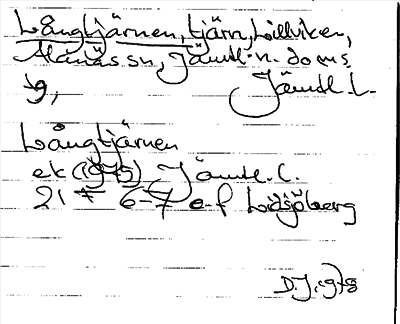 Långtjärnen, tjärn, Lillviken,
Alanäs sn, Jämtl. n. doms
g, Jämtl. L.
Långtjärnen
ek (1975) Jämtl. L.
21 6-7 e-f Lidsjöberg
D.J. 1978